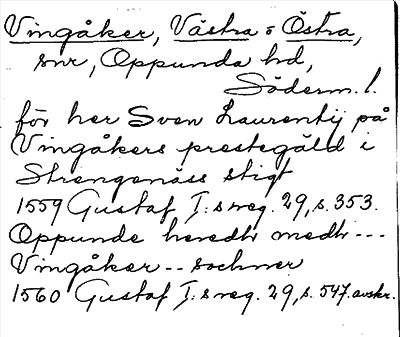 Vingåker, Västra o Östra,
snr, Oppunda hd,
Söderm. l.
för her Sven Laurentij på
Vingåkers prestegäld i
Strengenäss stigt
1559 Gustaf I:s reg. 29, s. 353.
Oppunde heredtz medh ---
Vingåker -- sochner
1560 Gustaf I:s reg. 29, s. 547. avskr.